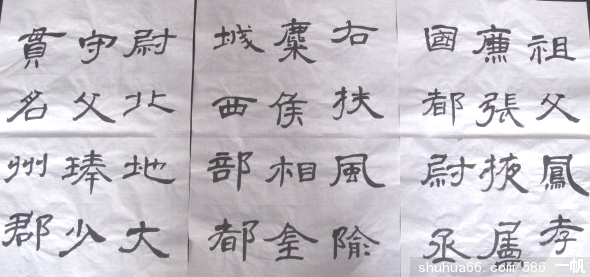 祖父鳳孝
廉張掖屬
國都尉丞
右扶風隃
麋侯相金
城西部都
尉北地大
守父琫少
貫名州郡
shuhua66.com/586 一帆